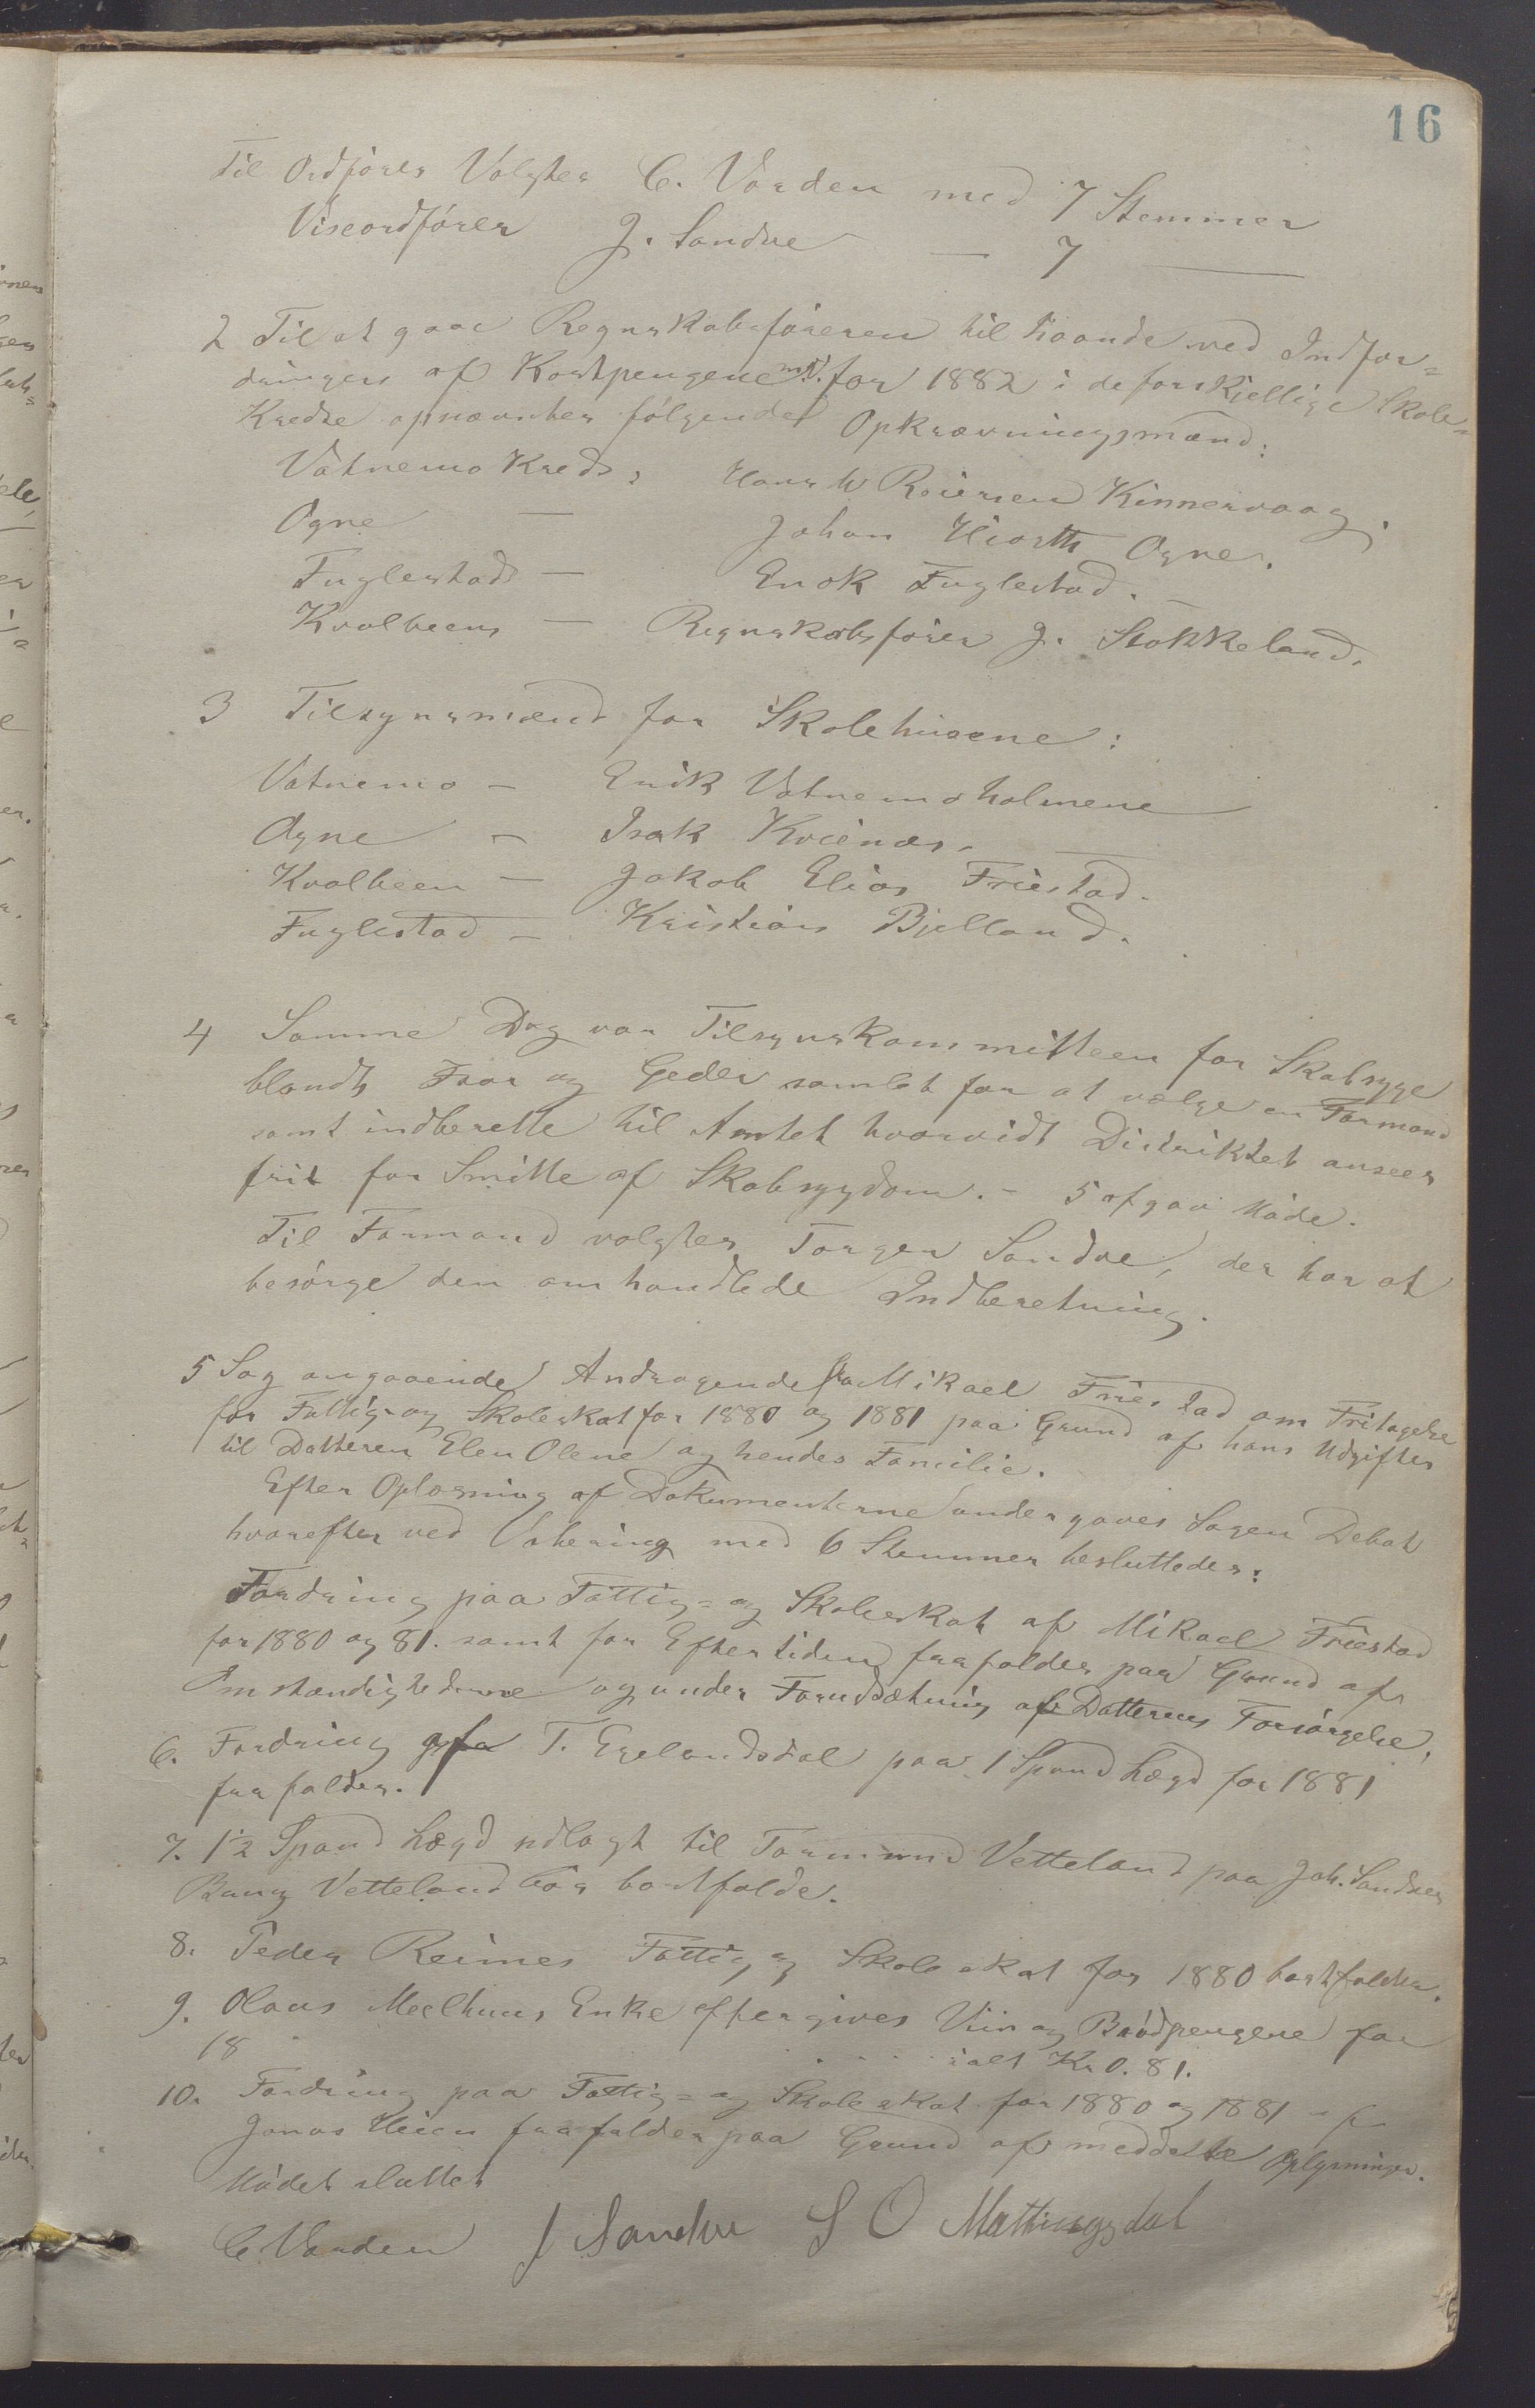 16
Til Ordfører Valgtes C. Varden med 7 Stemmer
Viseordfører J. Sandve — 7 —
2 Til at gaae Regnskabsføreren til Haande ved Indfor=
dringen af Kostpengene m.v. for 1882 i de forskjellige Skole=
Kredse opnævntes følgende Opkrævningsmænd:
Vatnemo Kreds: Hans W Reiersen Kinnervaag.
Ogne — Johan Hiorth Ogne.
Fuglestads — Enok Fuglestad.
Kvalbeens — Regnskabsfører J. Stokkeland.
3 Tilsynsmænd for Skolehusene:
Vatnemo — Erik Vatnemoholmene
Ogne — Isak Kviinæs.
Kvalbeen — Jakob Elias Friestad.
Fuglestad — Kristian Bjelland.
4 Samme Dag var Tilsynskommitteen for Skabsyge
blandt Faar og Geder samlet for at vælge en Formand
samt indberette til Amtet hvorvidt Distriktet ansees
frit for Smitte af Skabsygdom. - 5 afgav Møde.
Til Formand valgtes Torger Sandve, der har at
besørge den omhandlede Indberetning.
5 Sag angaaende Andragende fra Mikael Friestad om Fritagelse
for Fattig- og Skoleskat for 1880 og 1881 paa Grund af hans Udgifter
til Datteren Elen Olene og hendes Familie.
Efter Oplæsning af Dokumenterne undergaves Sagen Debat
hvorefter ved Votering med 6 Stemmer besluttedes:
Fordring paa Fattig= og Skoleskat af Mikael Friestad
for 1880 og 81. samt for Eftertiden frafaldes paa Grund af
Omstændighederne og under Forudsætning af Datterens Forsørgelse.
6. Fordring fra T. Egelandsdal paa 1 Spand Lægd for 1881
frafaldes.
7. 1½ Spand Lægd udlagt til Tormund Vetteland paa Joh. Sandves
Brug Vetteland bør bortfalde.
8. Peder Reimes Fattig og Skoleskat for 1880 bortfalder.
9. Olaus Meelhuus Enke eftergives Viin og Brødpengene for
18 .... ialt Kr 0.81.
10. Fordring paa Fattig= og Skoleskat for 1880 og 1881
Jonas Heien frafaldes paa Grund af meddelte Oplysninger.
Mødet sluttet
C. Varden J Sandve S O Mattingsdal